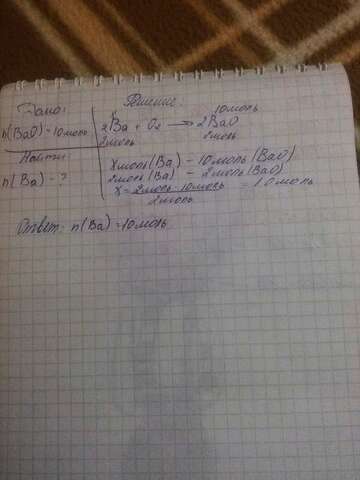 Дано:
n(BaO)=10моль
Найти:
n(Ba) - ?
Решение:
x 10моль
2Ba + O2 → 2BaO
2моль 2моль
xмоль(Ba) - 10моль(BaO)
2моль(Ba) - 2моль(BaO)
x = 2моль·10моль / 2моль = 10моль
Ответ: n(Ba)=10моль